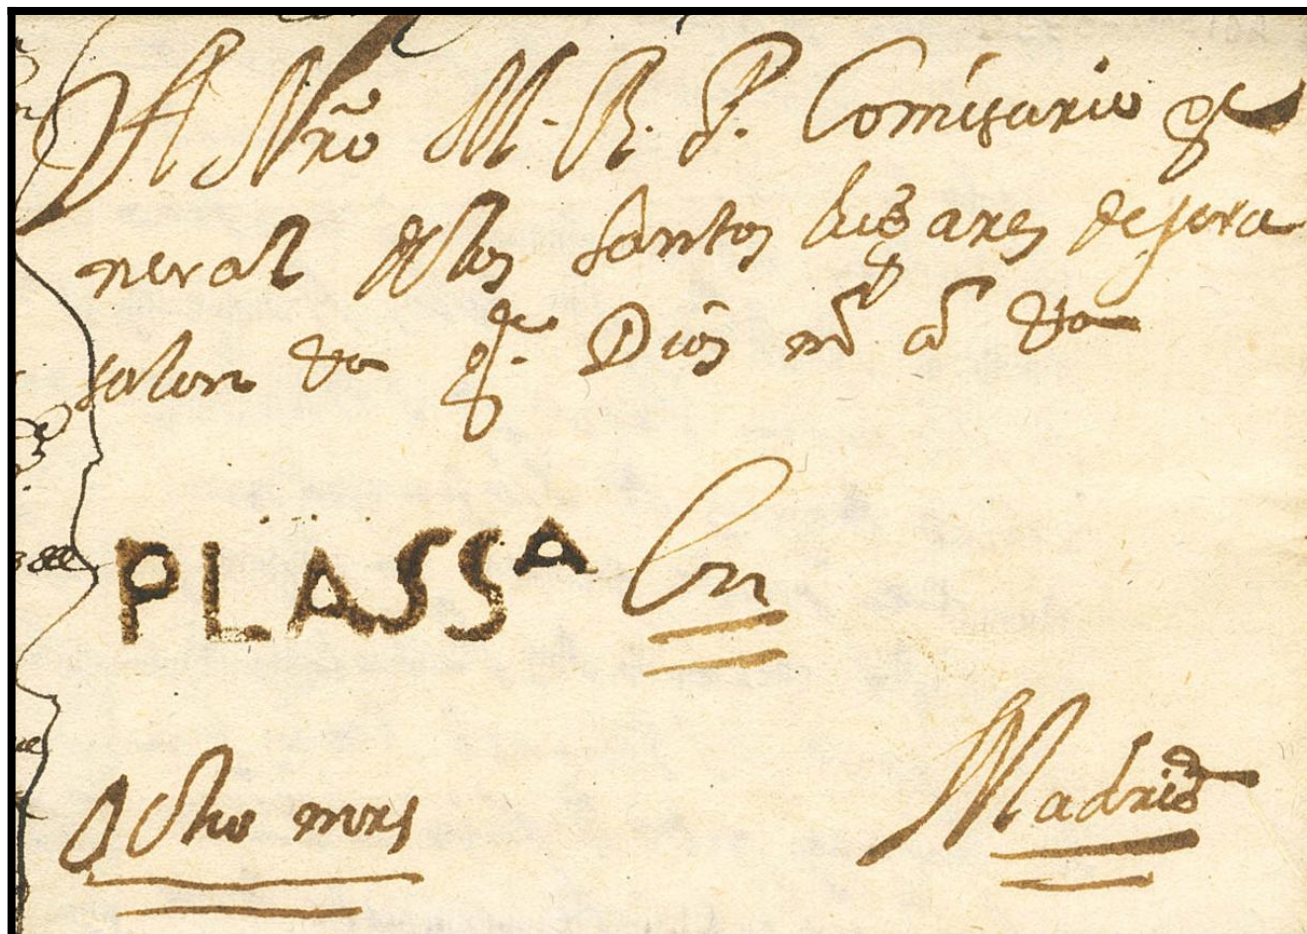 A Nrõ M. R. P. Comisario ge
neral de los Santos lugares de jeru
salen &a qe. Dios ms as &a
PLASSA En
Ocho mrs
Madrid